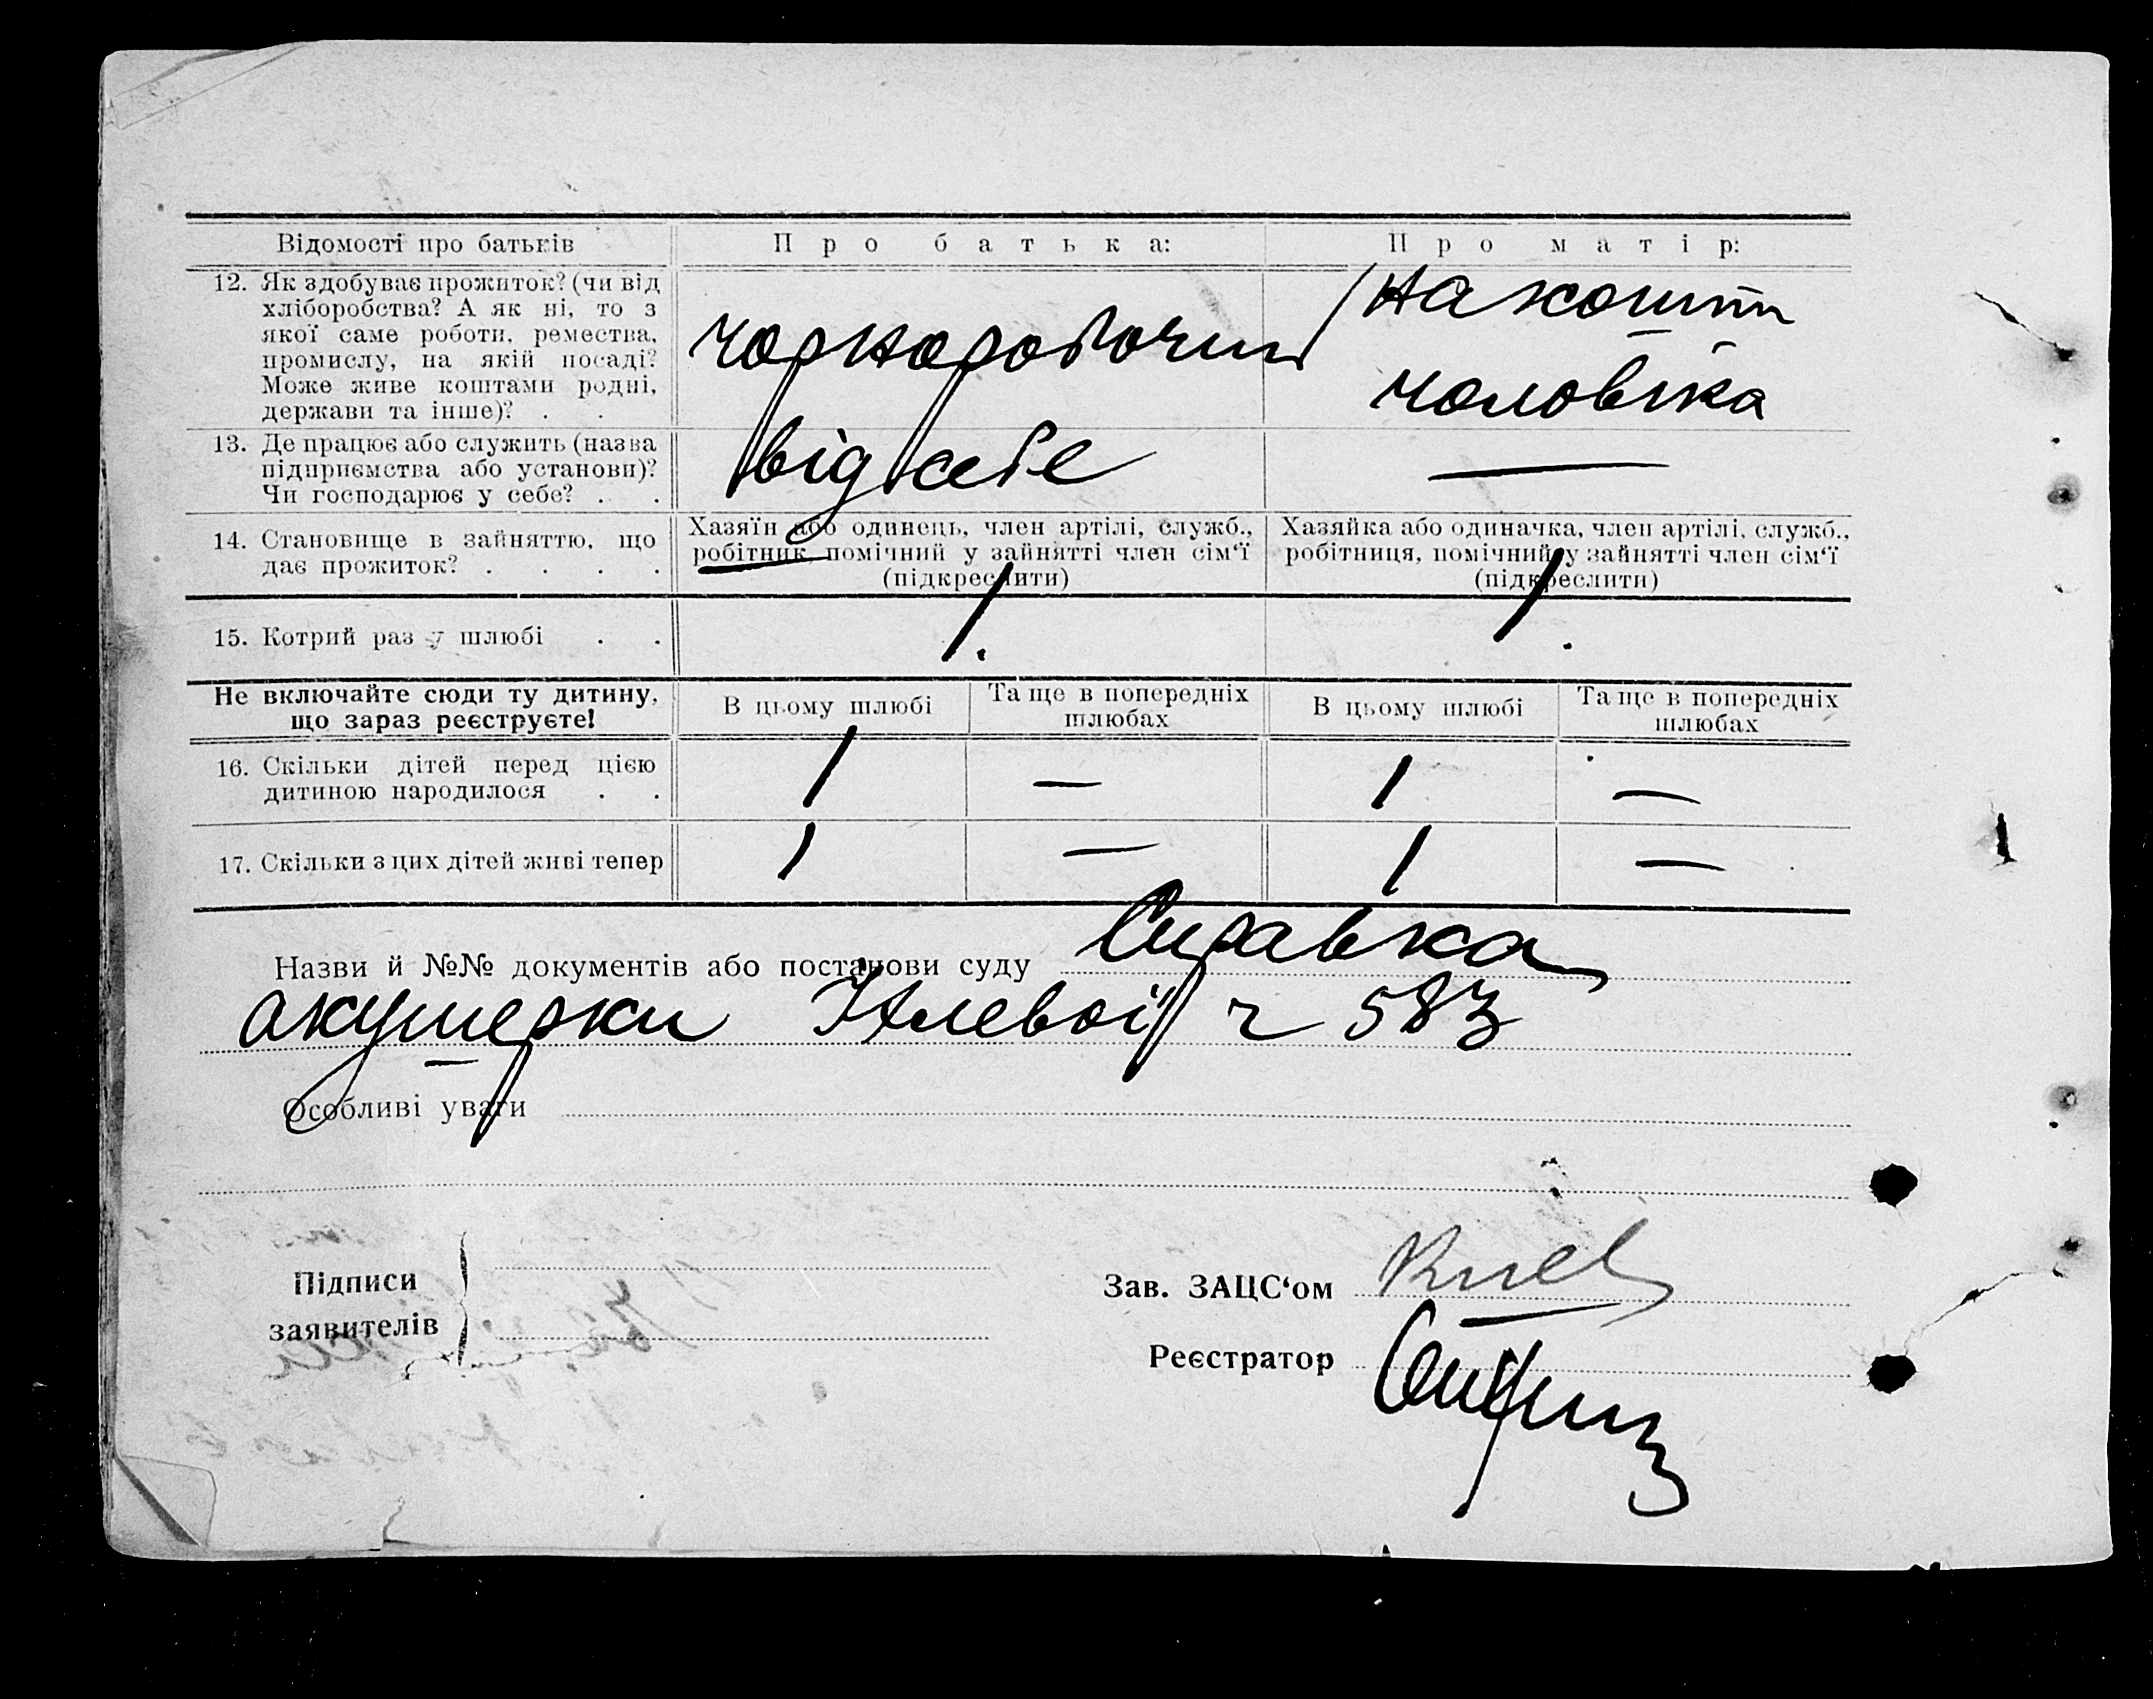 Відомості про батьків
Про батька:
Про матір:
12. Як здобуває прожиток? (чи від
хліборобства? А як ні, то з
якої саме роботи, ремества,
промислу, на якій посаді?
Може живе коштами родні,
держави та інше)? . .
чорноробочий
На кошти
чоловіка
13. Де працює або служить (назва
підприємства або установи)?
Чи господарює у себе? . .
від себе
—
14. Становище в зайняттю, що
дає прожиток? . . . .
Хазяїн або одинець, член артілі, служб.,
робітник, помічний у зайнятті член сім‘ї
(підкреслити)
Хазяйка або одиначка, член артілі, служб.,
робітниця, помічний у зайнятті член сім‘ї
(підкреслити)
15. Котрий раз у шлюбі . .
1.
1.
Не включайте сюди ту дитину,
що зараз реєструєте!
В цьому шлюбі
Та ще в попередніх
шлюбах
В цьому шлюбі
Та ще в попередніх
шлюбах
16. Скільки дітей перед цією
дитиною народилося . .
1
—
1
—
17. Скільки з цих дітей живі тепер
1
—
1
—
Назви й №№ документів або постанови суду Справка
акушерки ч 583
Особливі уваги
Підписи
заявителів
Зав. ЗАЦС‘ом
Реєстратор